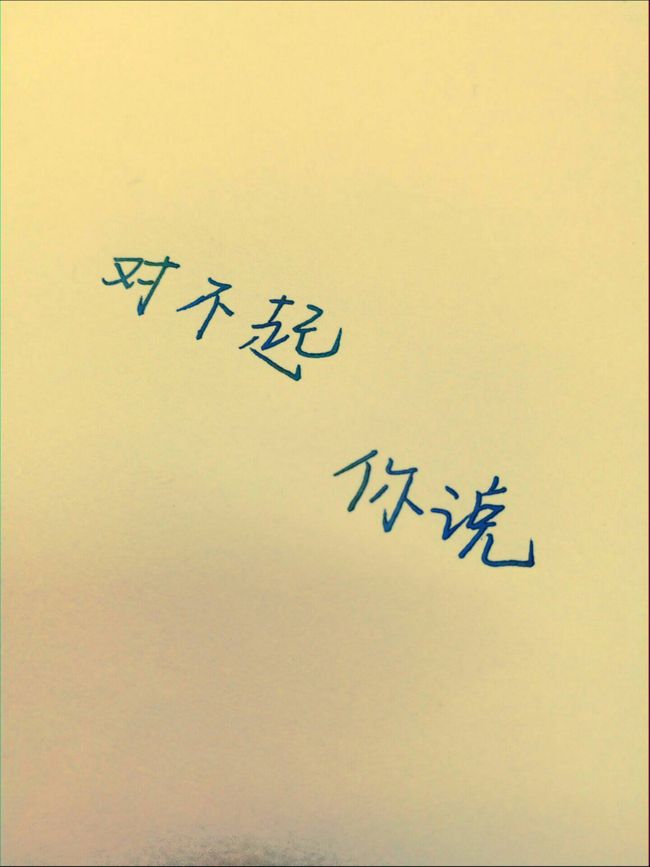 对不起
你说